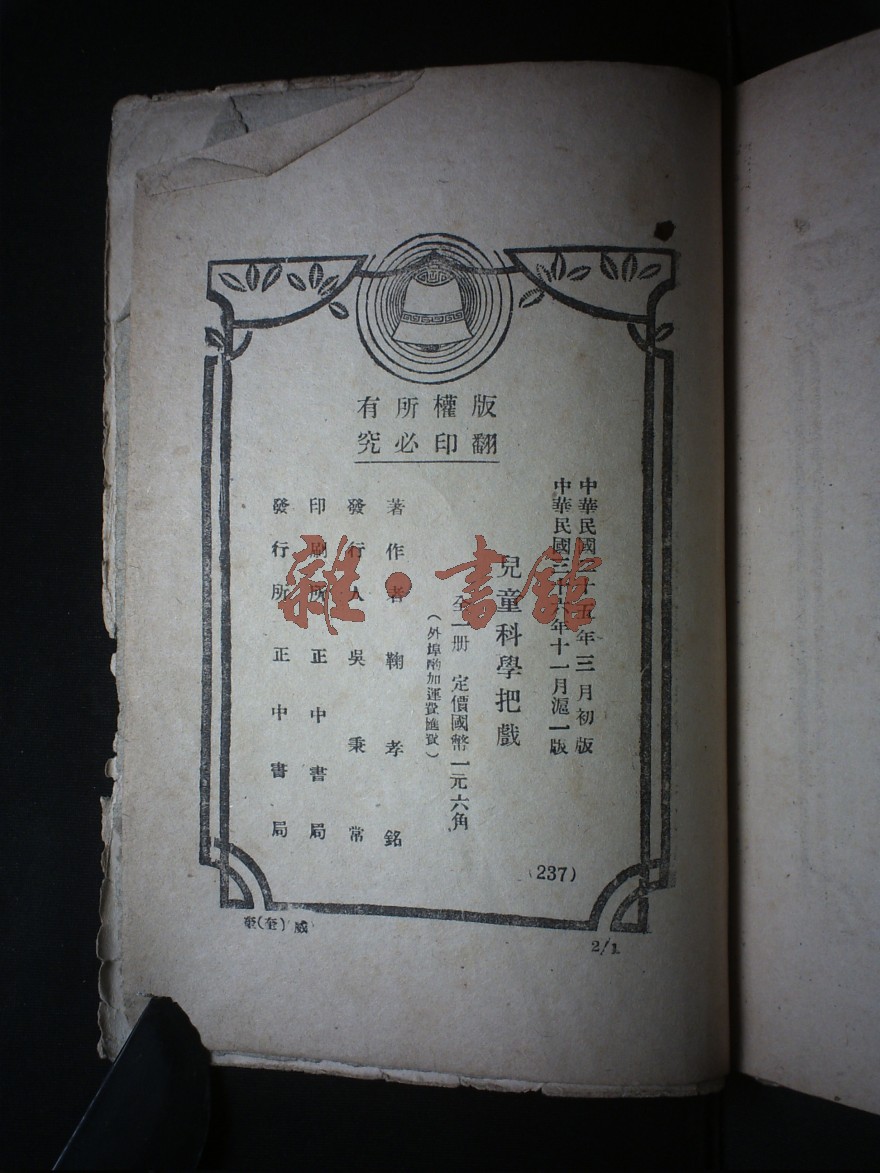 版權所有
翻印必究
中華民國十五年三月初版
中華民國三十六年十一月滬一版
兒童科學把戲
全一册 定價國幣一元六角
(外埠酌加運費匯費)
著作者 鞠孝銘
發行人 吳秉常
印刷所 正中書局
發行所 正中書局
(237)
(奎)威
2/1
雜·書館